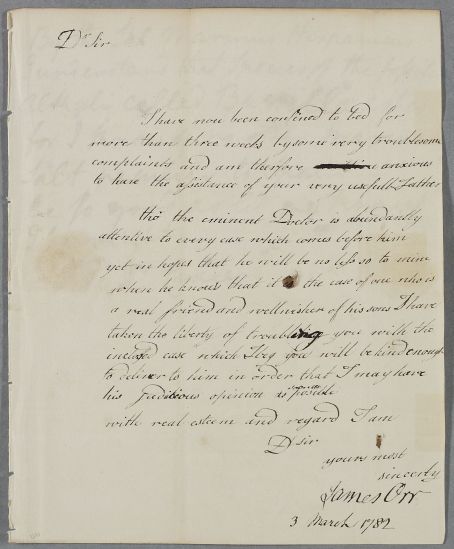 Dr Sir
I have now been confined to bed for
more than three weeks by some very troublesome
complaints and am therfore anxious
to have the assistance of your very usefull Father
tho the eminent Doctor is abundantly
attentive to every case which comes before him
yet in hopes that he will be no less so to mine
when he knows that it is the case of one who is
a real friend and wellwisher of his sons I have
taken the liberty of troubling you with the
inclosed case which I beg you will be kind enough
to deliver to him in order that I may have
his Juditious opinion as soon as possible
with real esteem and regard I am
Dr Sir
yours most
sincerly
James Orr
3 March 1782